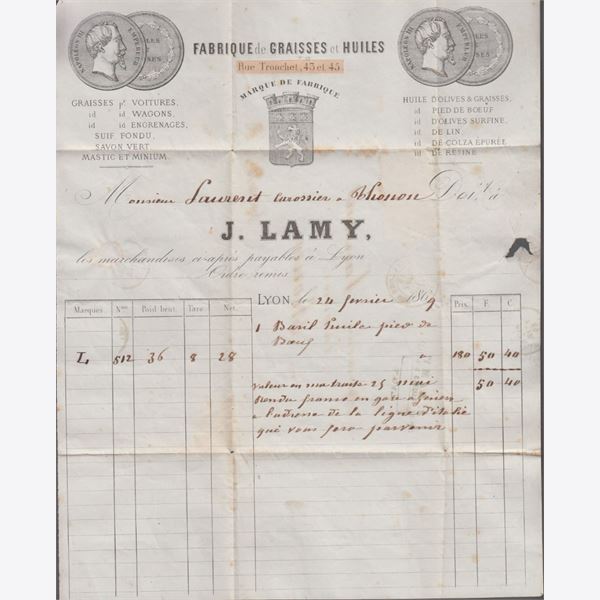 NAPOLÉON III EMPEREUR
FABRIQUE de GRAISSES et HUILES
Rue Tronchet, 43 et 45
MARQUE DE FABRIQUE
NAPOLÉON III EMPEREUR
GRAISSES pr VOITURES,
id id WAGONS,
id id ENGRENAGES,
SUIF FONDU,
SAVON VERT.
MASTIC ET MINIUM.
HUILE D'OLIVES & GRAISSES,
id PIED DE BŒUF
id D'OLIVES SURFINE,
id DE LIN,
id DE COLZA EPURÉE
id DE RÉSINE
Monsieur Laurent carossier a Thonon Doit à
J. LAMY,
les marchandises ci-après payables à Lyon
Ordre remis
LYON, le 24 fevrier 1869
Marques Nos Poid brut. Tare Net. Prix. F. C.
1 Baril huile pied de
Bœuf
L 512 36 8 28 a 180 50 40
valeur en ma traite 25 mai 50 40
Rendu franco en gare a
a l'adresse de la ligne d'italie
qui vous fera parvenir